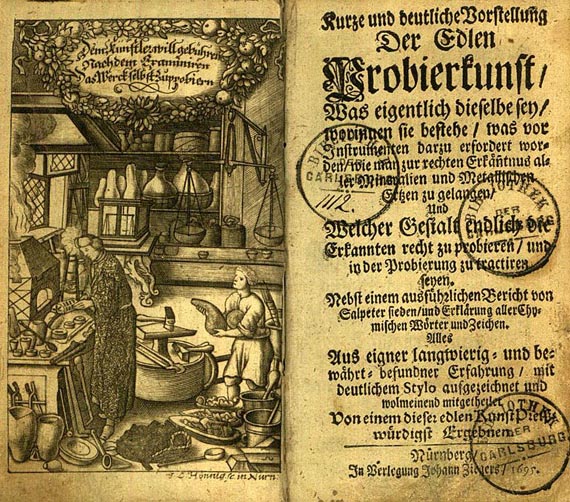 Dem Künstler will gebühren
Nach dem Examiniren
Das Werck selbst zu probiern
in Nurn
Kurtze und deutliche Vorstellung
Der Edlen
Probierkunst/
Was eigentlich dieselbe sey/
worinnen sie bestehe/ was vor
Instrumenten darzu erfordert wor-
den/ wie man zur rechten Erkäntnus al-
ler Mineralien und Metallischen
Ertzen zu gelangen/
Und
Welcher Gestalt endlich die
Erkannten recht zu probieren/ und
in der Probierung zu tractiren
seyen.
Nebst einem ausführlichen Bericht von
Salpeter sieden/ und Erklärung aller Chy-
mischen Wörter und Zeichen.
Alles
Aus eigner langwierig- und be-
währt- befundner Erfahrung/ mit
deutlichem Stylo aufgezeichnet und
wolmeinend mitgetheilet
Von einem dieser edlen Kunst
würdigst Ergebnen.
Nürnberg/
In Verlegung Johann Ziegers/ 1695.
CARLSBURG
1112.
BIBLIOTHEK
DER
BIBLIOTHEK
DER
CARLSBURG